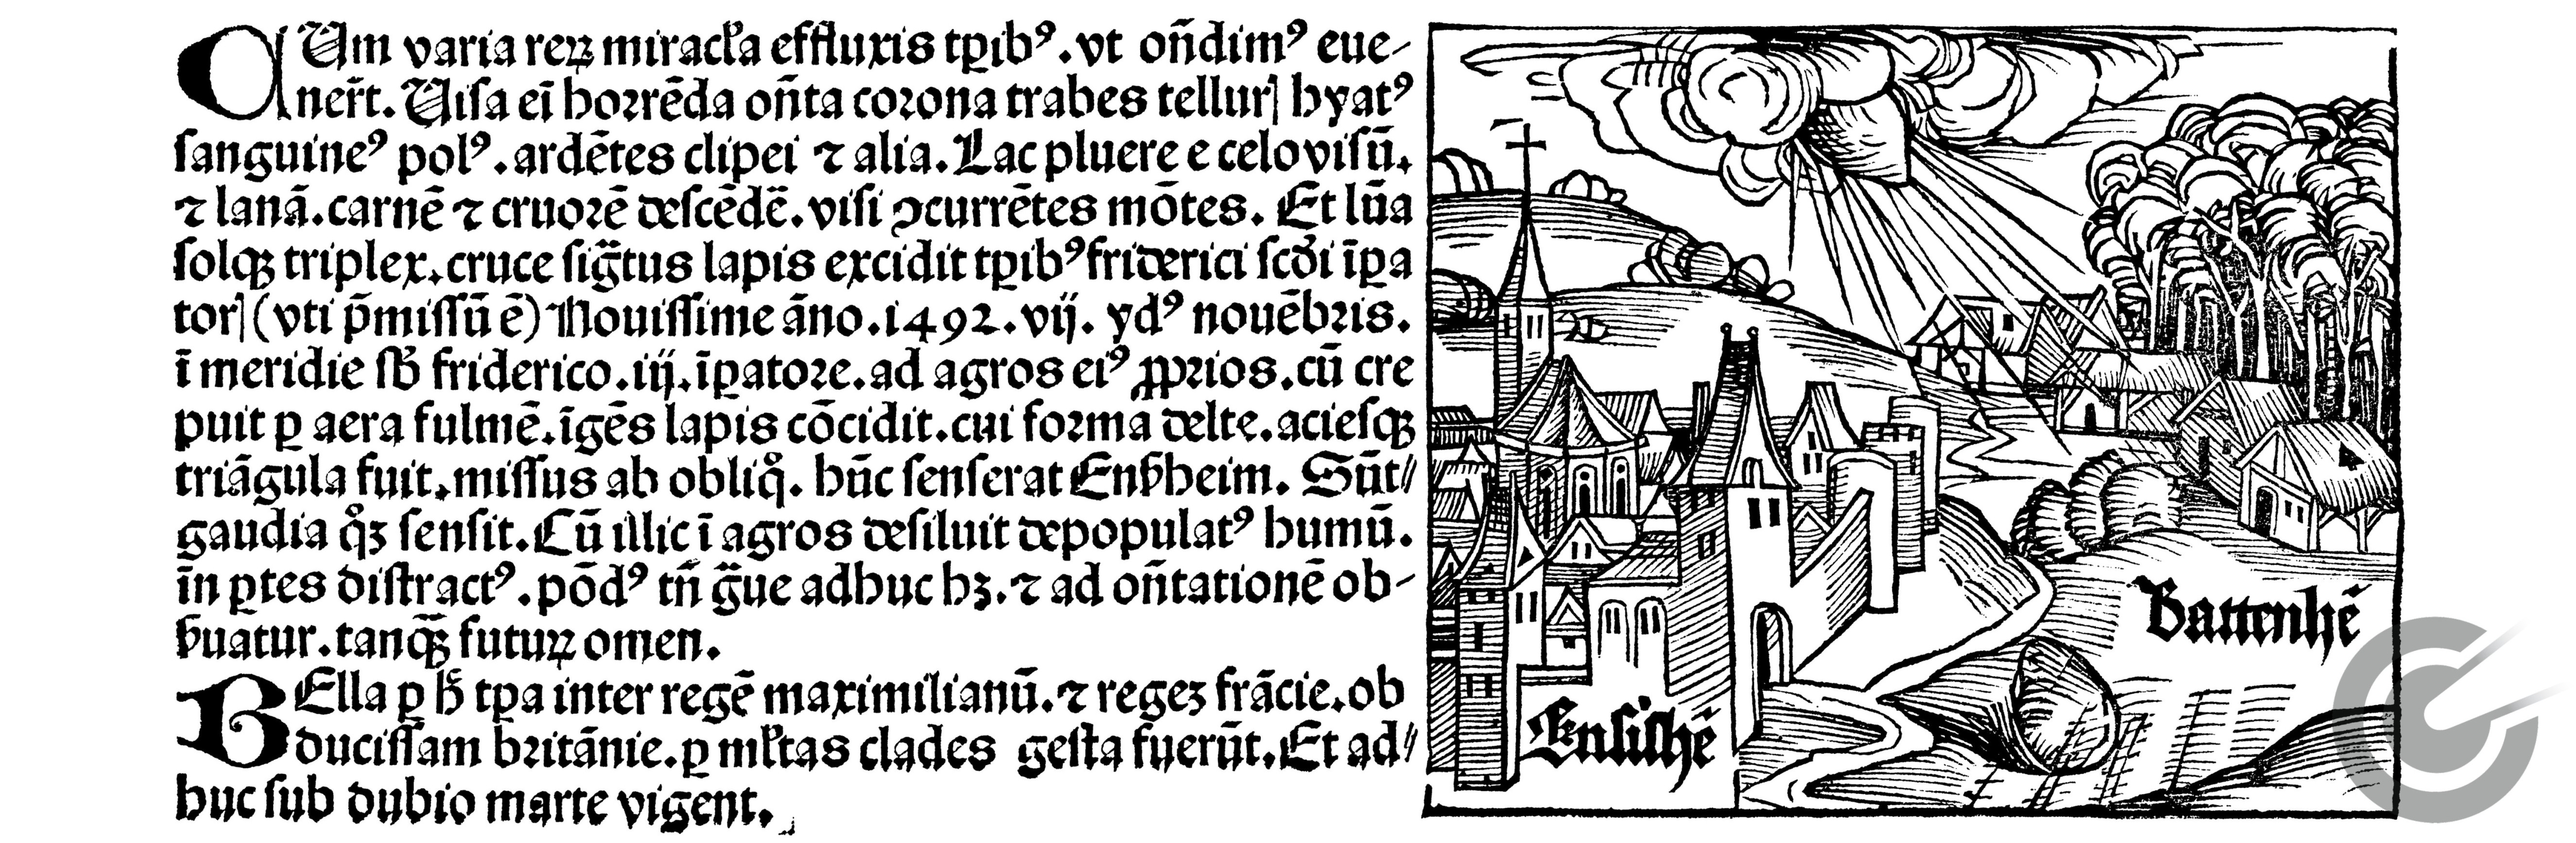 CUm varia reꝝ miracl'a effluxis tꝑibꝰ.vt on̄dimꝰ eue-
ner̄t. Uisa ei̅ horrēda on̄ta corona trabes tellurꝭ hyatꝰ
sanguineꝰ polꝰ.ardētes clipei ⁊ alia. Lac pluere e celo visū.
⁊ lanā.carnē ⁊ cruorē descēdē̄.visi ꝯcurrētes mōtes. Et lūa
solqꝫ triplex.cruce sig̅tus lapis excidit tꝑibꝰ friderici scd̓i īꝑa
torꝭ (vti p̄missū ē) Nouissime āno.1492.vij. ydꝰ nouēbris.
ī meridie sb̓ friderico.iij.īꝑatore.ad agros eiꝰ ꝓprios.cū cre
puit ꝑ aera fulmē.īgēs lapis cōcidit.cui forma delte.aciesqꝫ
triāgula fuit.missus ab obliqͦ. hūc senserat Ensheim. Sūt//
gaudia qͦꝫ sensit. Cū illic ī agros desiluit depopulatꝰ humū.
īn ꝑtes distractꝰ.pōdꝰ tn̄ g̅ue adhuc hꝫ.⁊ ad on̄tationē ob-
ẜuatur.tanqꝫ̄ futuꝝ omen.
BElla ꝑ h̓ tꝑa inter regē maximilianū.⁊ regeꝫ frācie.ob
ducissam britānie.ꝑ ml'tas clades gesta fuerūt. Et ad//
huc sub dubio marte vigent.
Battenhē
Ensishē